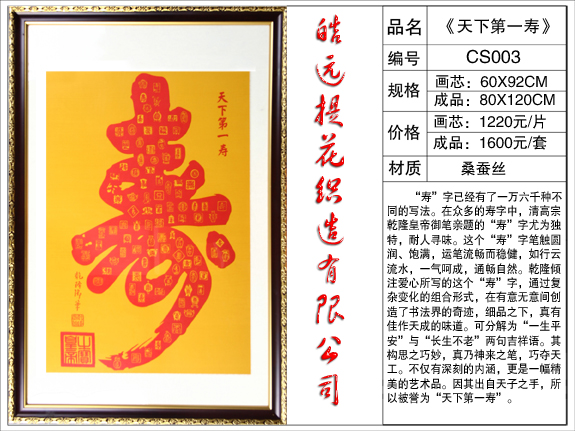 天下第一寿
乾隆御笔
皓元提花织造有限公司
品名 《天下第一寿》
编号 CS003
规格 画芯：60X92CM
成品：80X120CM
价格 画芯：1220元/片
成品：1600元/套
材质 桑蚕丝
“寿”字已经有了一万六千种不
同的写法。在众多的寿字中，清高宗
乾隆皇帝御笔亲题的“寿”字尤为独
特，耐人寻味。这个“寿”字笔触圆
润、饱满，运笔流畅而稳健，如行云
流水，一气呵成，通畅自然。乾隆倾
注爱心所写的这个“寿”字，通过复
杂变化的组合形式，在有意无意间创
造了书法界的奇迹，细品之下，真有
佳作天成的味道。可分解为“一生平
安”与“长生不老”两句吉祥语。其
构思之巧妙，真乃神来之笔，巧夺天
工。不仅有深刻的内涵，更是一幅精
美的艺术品。因其出自天子之手，所
以被誉为“天下第一寿”。